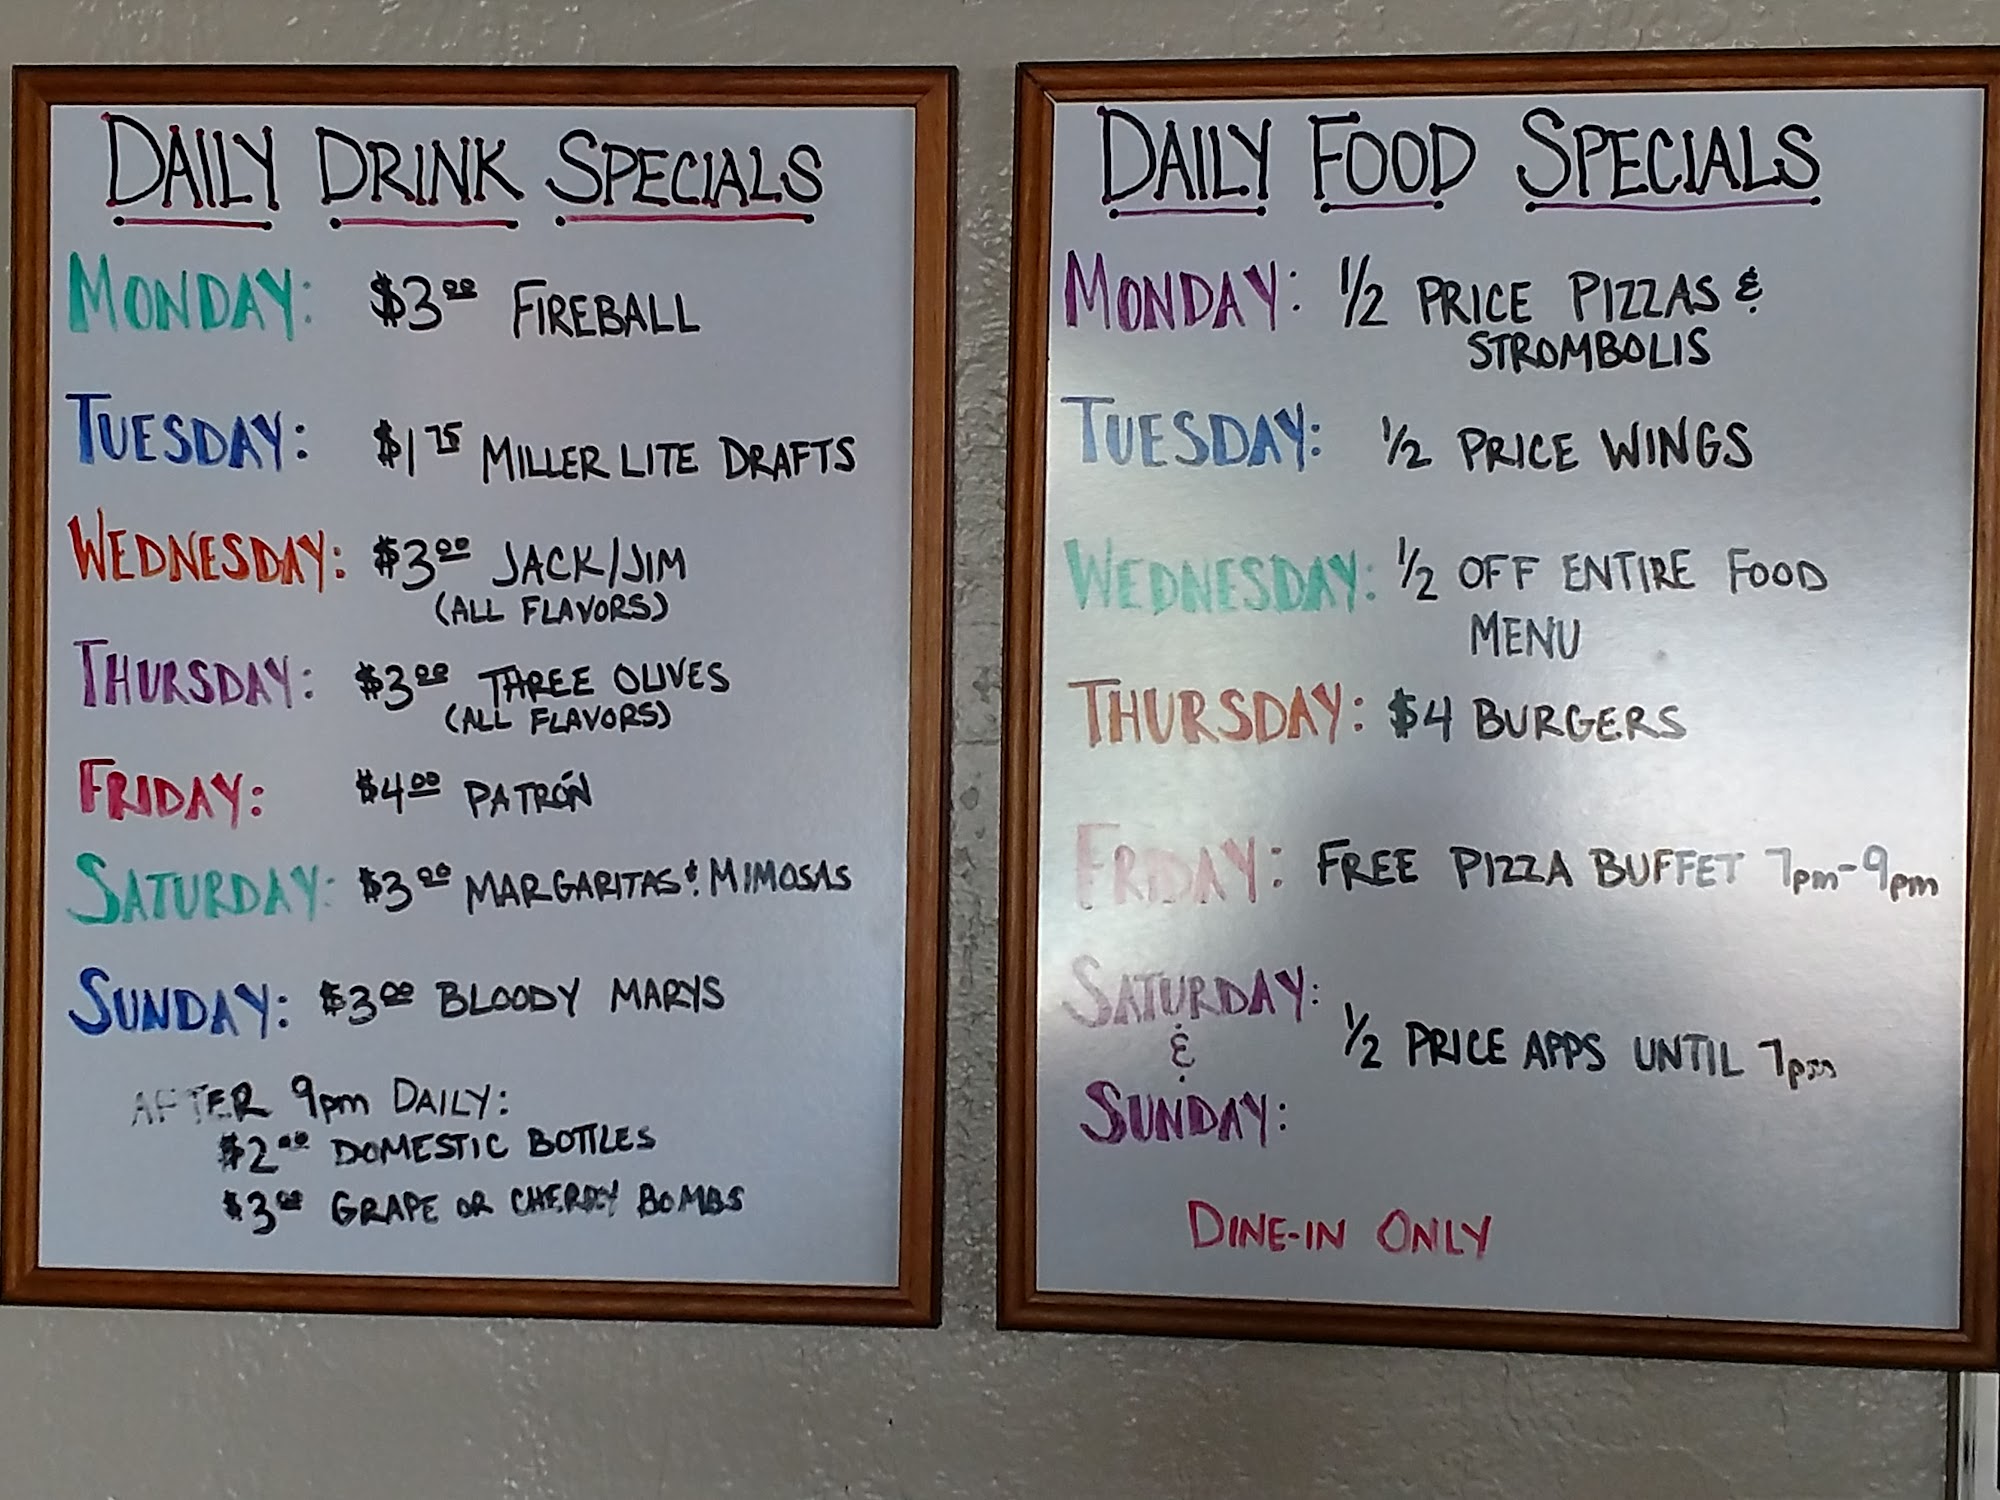 DAILY DRINK SPECIALS
MONDAY: $3.00 FIREBALL
TUESDAY: $1.75 MILLER LITE DRAFTS
WEDNESDAY: $3.00 JACK/JIM
(ALL FLAVORS)
THURSDAY: $3.00 THREE OLIVES
(ALL FLAVORS)
FRIDAY: $4.00 PATRÓN
SATURDAY: $3.00 MARGARITAS & MIMOSAS
SUNDAY: $3.00 BLOODY MARYS
AFTER 9pm DAILY:
$2.00 DOMESTIC BOTTLES
$3.00 GRAPE OR CHERRY BOMBS
DAILY FOOD SPECIALS
MONDAY: 1/2 PRICE PIZZAS &
STROMBOLIS
TUESDAY: 1/2 PRICE WINGS
WEDNESDAY: 1/2 OFF ENTIRE FOOD
MENU
THURSDAY: $4 BURGERS
FRIDAY: FREE PIZZA BUFFET 7pm-9pm
SATURDAY:
&
1/2 PRICE APPS UNTIL 7pm
SUNDAY:
DINE-IN ONLY